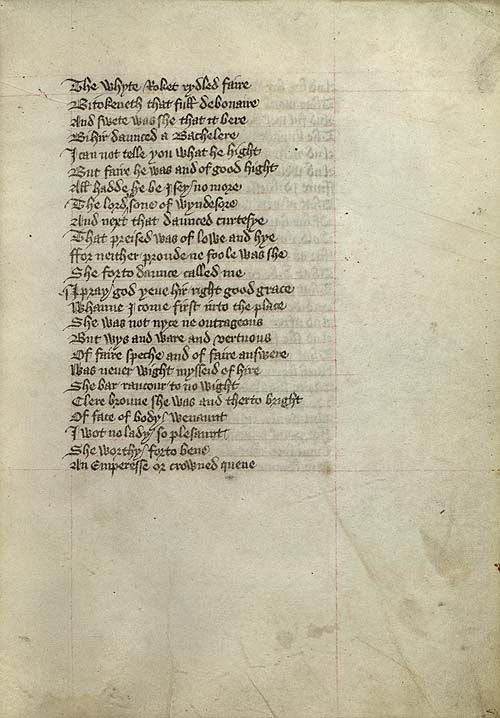 The whyte Roket rydled faire
Bitokeneth that full debonaire
And swete was she that it bere
Bi hir daunced a Bachelere
I can not telle you what he hight
But faire he was and of good hight
All hadde he be I sey no more
The lordis sone of wyndesore
And next that daunced curtesye
That preised was of lowe and hye
ffor neither proude ne foole was she
She forto daunce called me
I pray god yeue hir right good grace
Whanne I come first into the place
She was not nyce ne outrageous
But wys and ware and vertuous
Of faire speche and of faire answere
Was neuer wight mysseid of hire
She bar rancour to no wight
Clere broune she was and therto bright
Of face of body wenaunt
I wot no lady so plesaunt
She worthy forto bene
An Emperesse or crowned quene